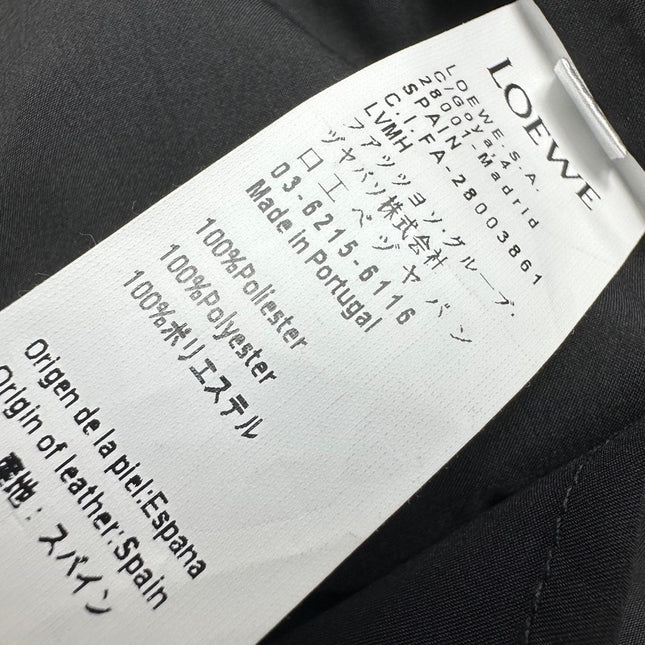 LOEWE
LOEWE.S.A.
C/Goya,4
28001-Madrid
SPAIN
C.I.FA-28003861
LVMH
ファッツョン・グループ・
ヅャパソ株式会社
口エベヅャバン
03-6215-6116
Made in Portugal
100%Poliester
100%Polyester
100%ポリエステル
Origen de la piel:Espana
Origin of leather:Spain
産地：スパイン